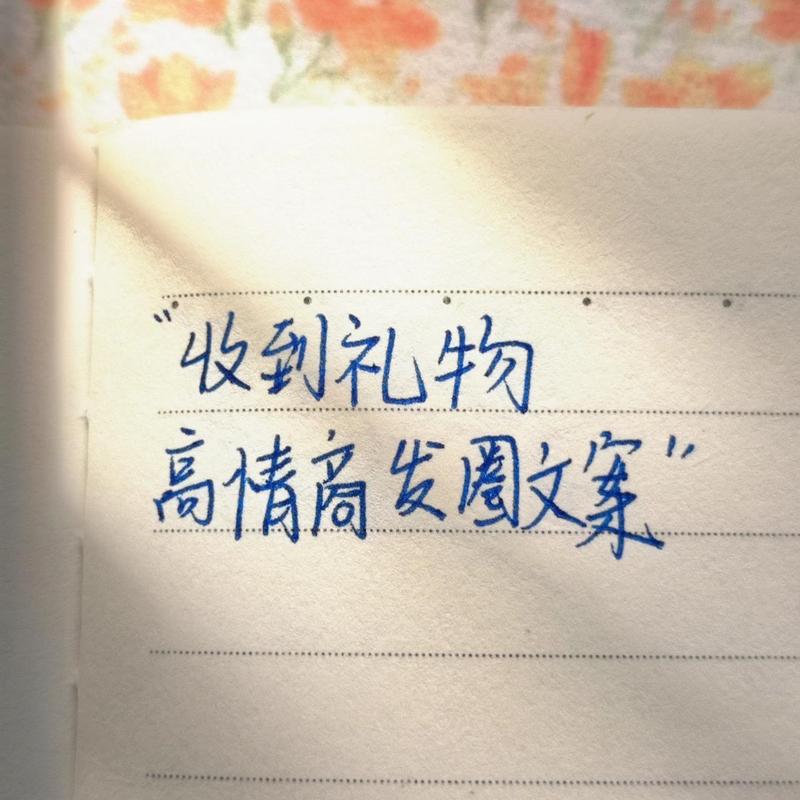 "收到礼物
高情商发圈文案"